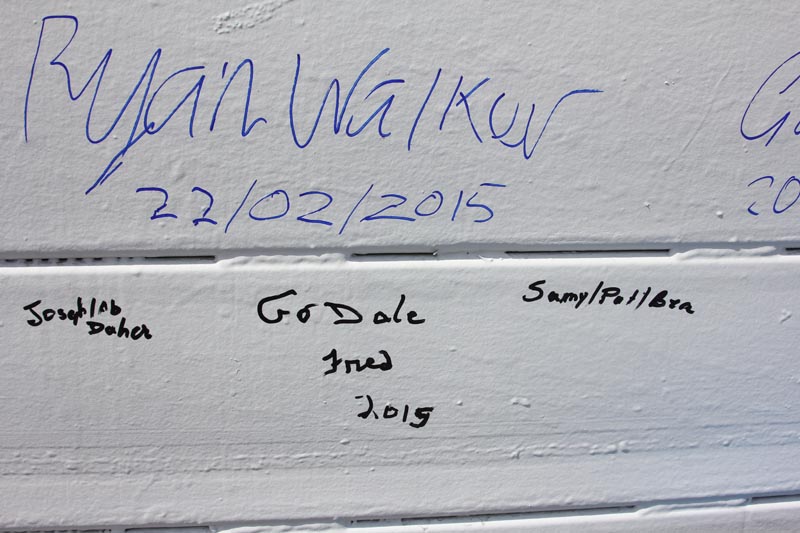 Ryan Walker
22/02/2015
20
Joseph/Ab
Daher
Go Dale
Fred
2015
Samy/Pat/Bra